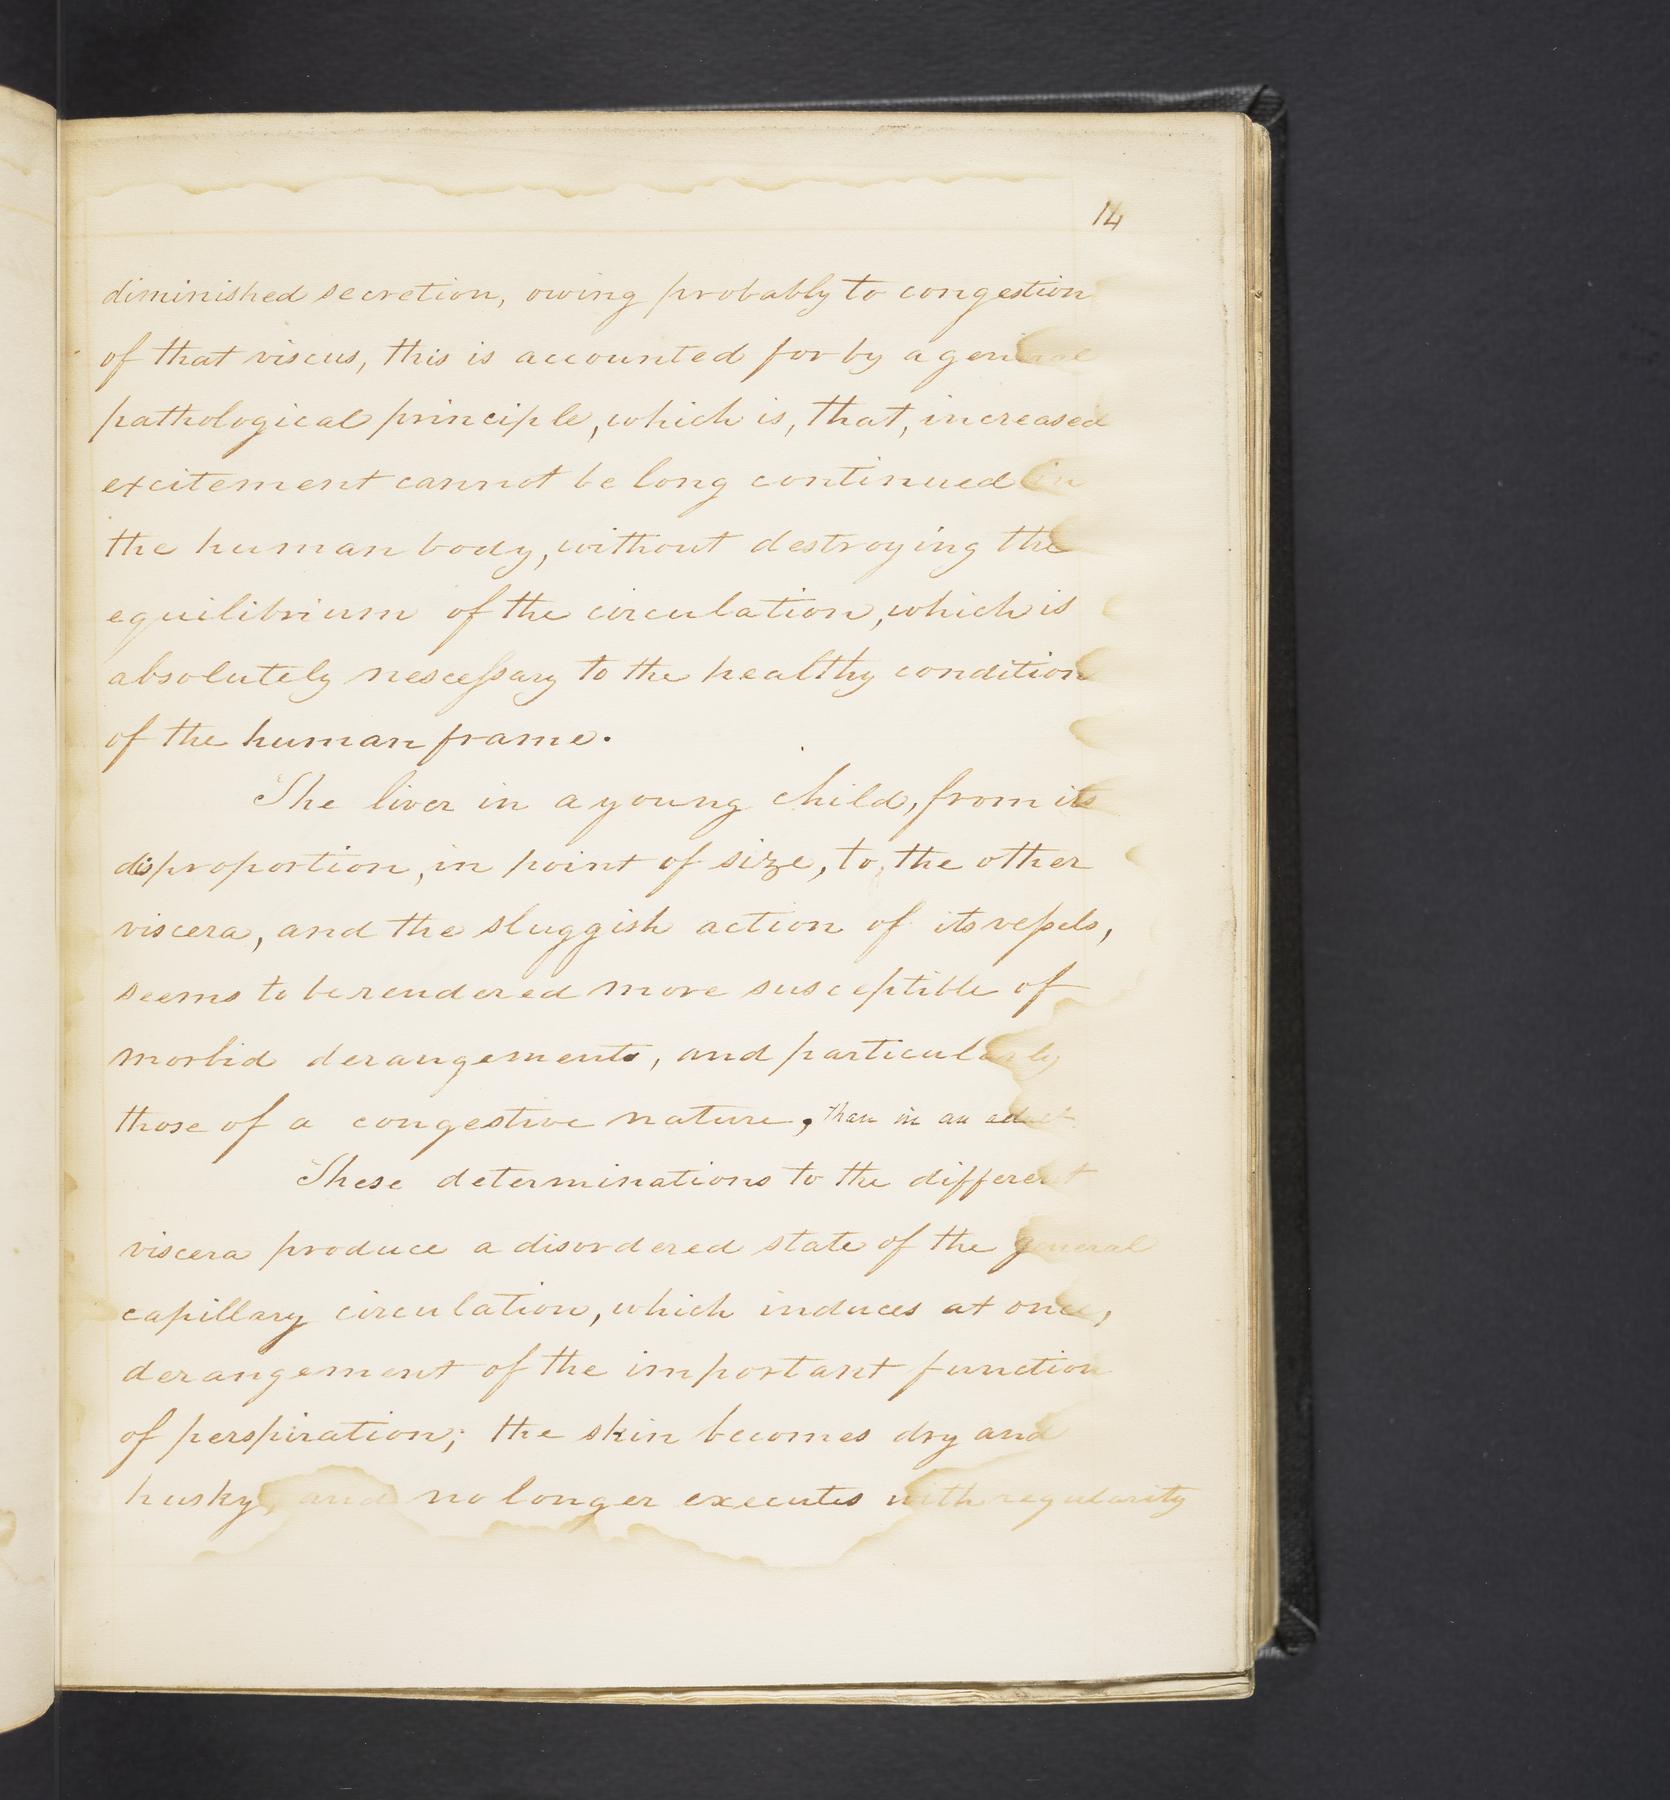 14
diminished secretion, owing probably to congestion
of that viscus, this is accounted for by a general
pathological principle, which is, that, increased
excitement cannot be long continued in
the human body, without destroying the
equilibrium of the circulation, which is
absolutely nesceſsary to the healthy condition
of the human frame.
The liver in a young child, from its
disproportion, in point of size, to, the other
viscera, and the sluggish action of its veſsels,
seems to be rendered more susceptible of
morbid derangements, and particularly
those of a congestive nature, than in an adult
These determinations to the different
viscera produce a disordered state of the general
capillary circulation, which induces at once,
derangement of the important function
of perspiration; the skin becomes dry and
husky, and no longer executes with regularity